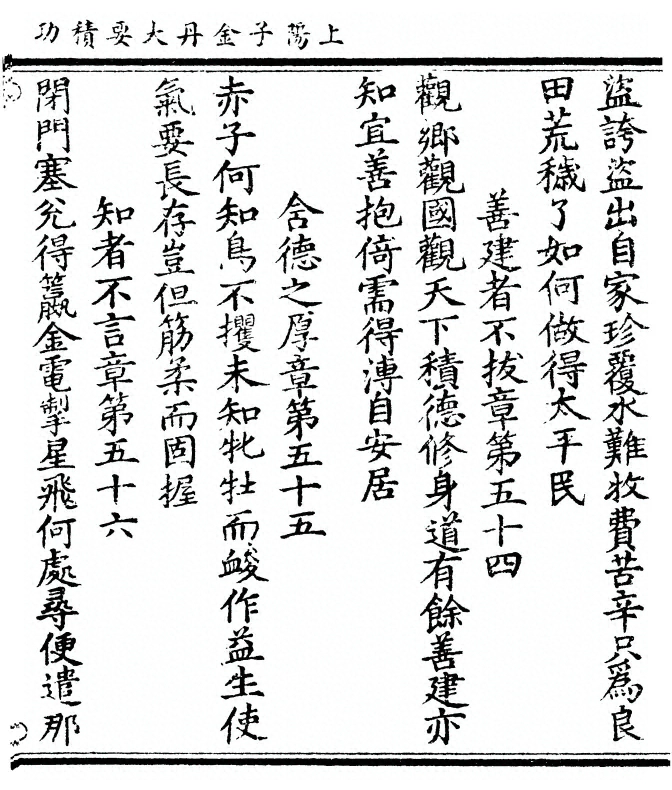 上陽子金丹大要積功
盜誇盜出自家珍覆水難收費苦辛只爲良
田荒穢了如何做得太平民
善建者不拔章第五十四
觀鄉觀國觀天下積德修身道有餘善建亦
知宜善抱倚需得溥自安居
含德之厚章第五十五
赤子何知鳥不攫未知牝牡而䘒作益生使
氣要長存豈但筋柔而固握
知者不言章第五十六
閉門塞兊得籯金電掣星飛何處尋便遣那